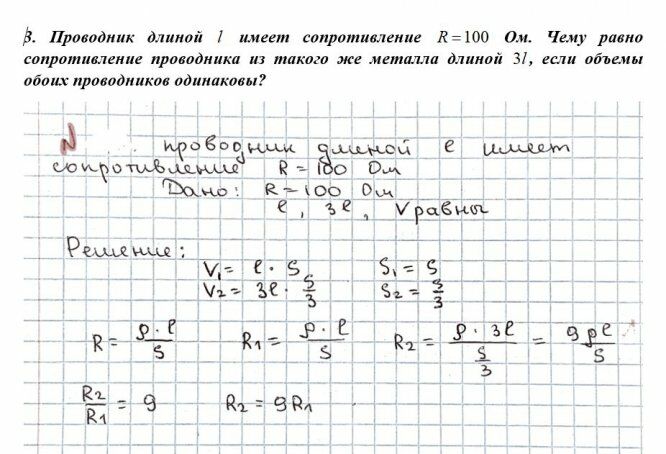 3. Проводник длиной l имеет сопротивление R=100 Ом. Чему равно
сопротивление проводника из такого же металла длиной 3l, если объемы
обоих проводников одинаковы?
N ... проводник длиной l имеет
сопротивление R = 100 Ом
Дано: R = 100 Ом
l, 3l, V равны
Решение:
V₁ = l · S S₁ = S
V₂ = 3l · S/3 S₂ = S/3
R = ρ·l/S R₁ = ρ·l/S R₂ = ρ·3l/(S/3) = 9ρl/S
R₂/R₁ = 9 R₂ = 9R₁